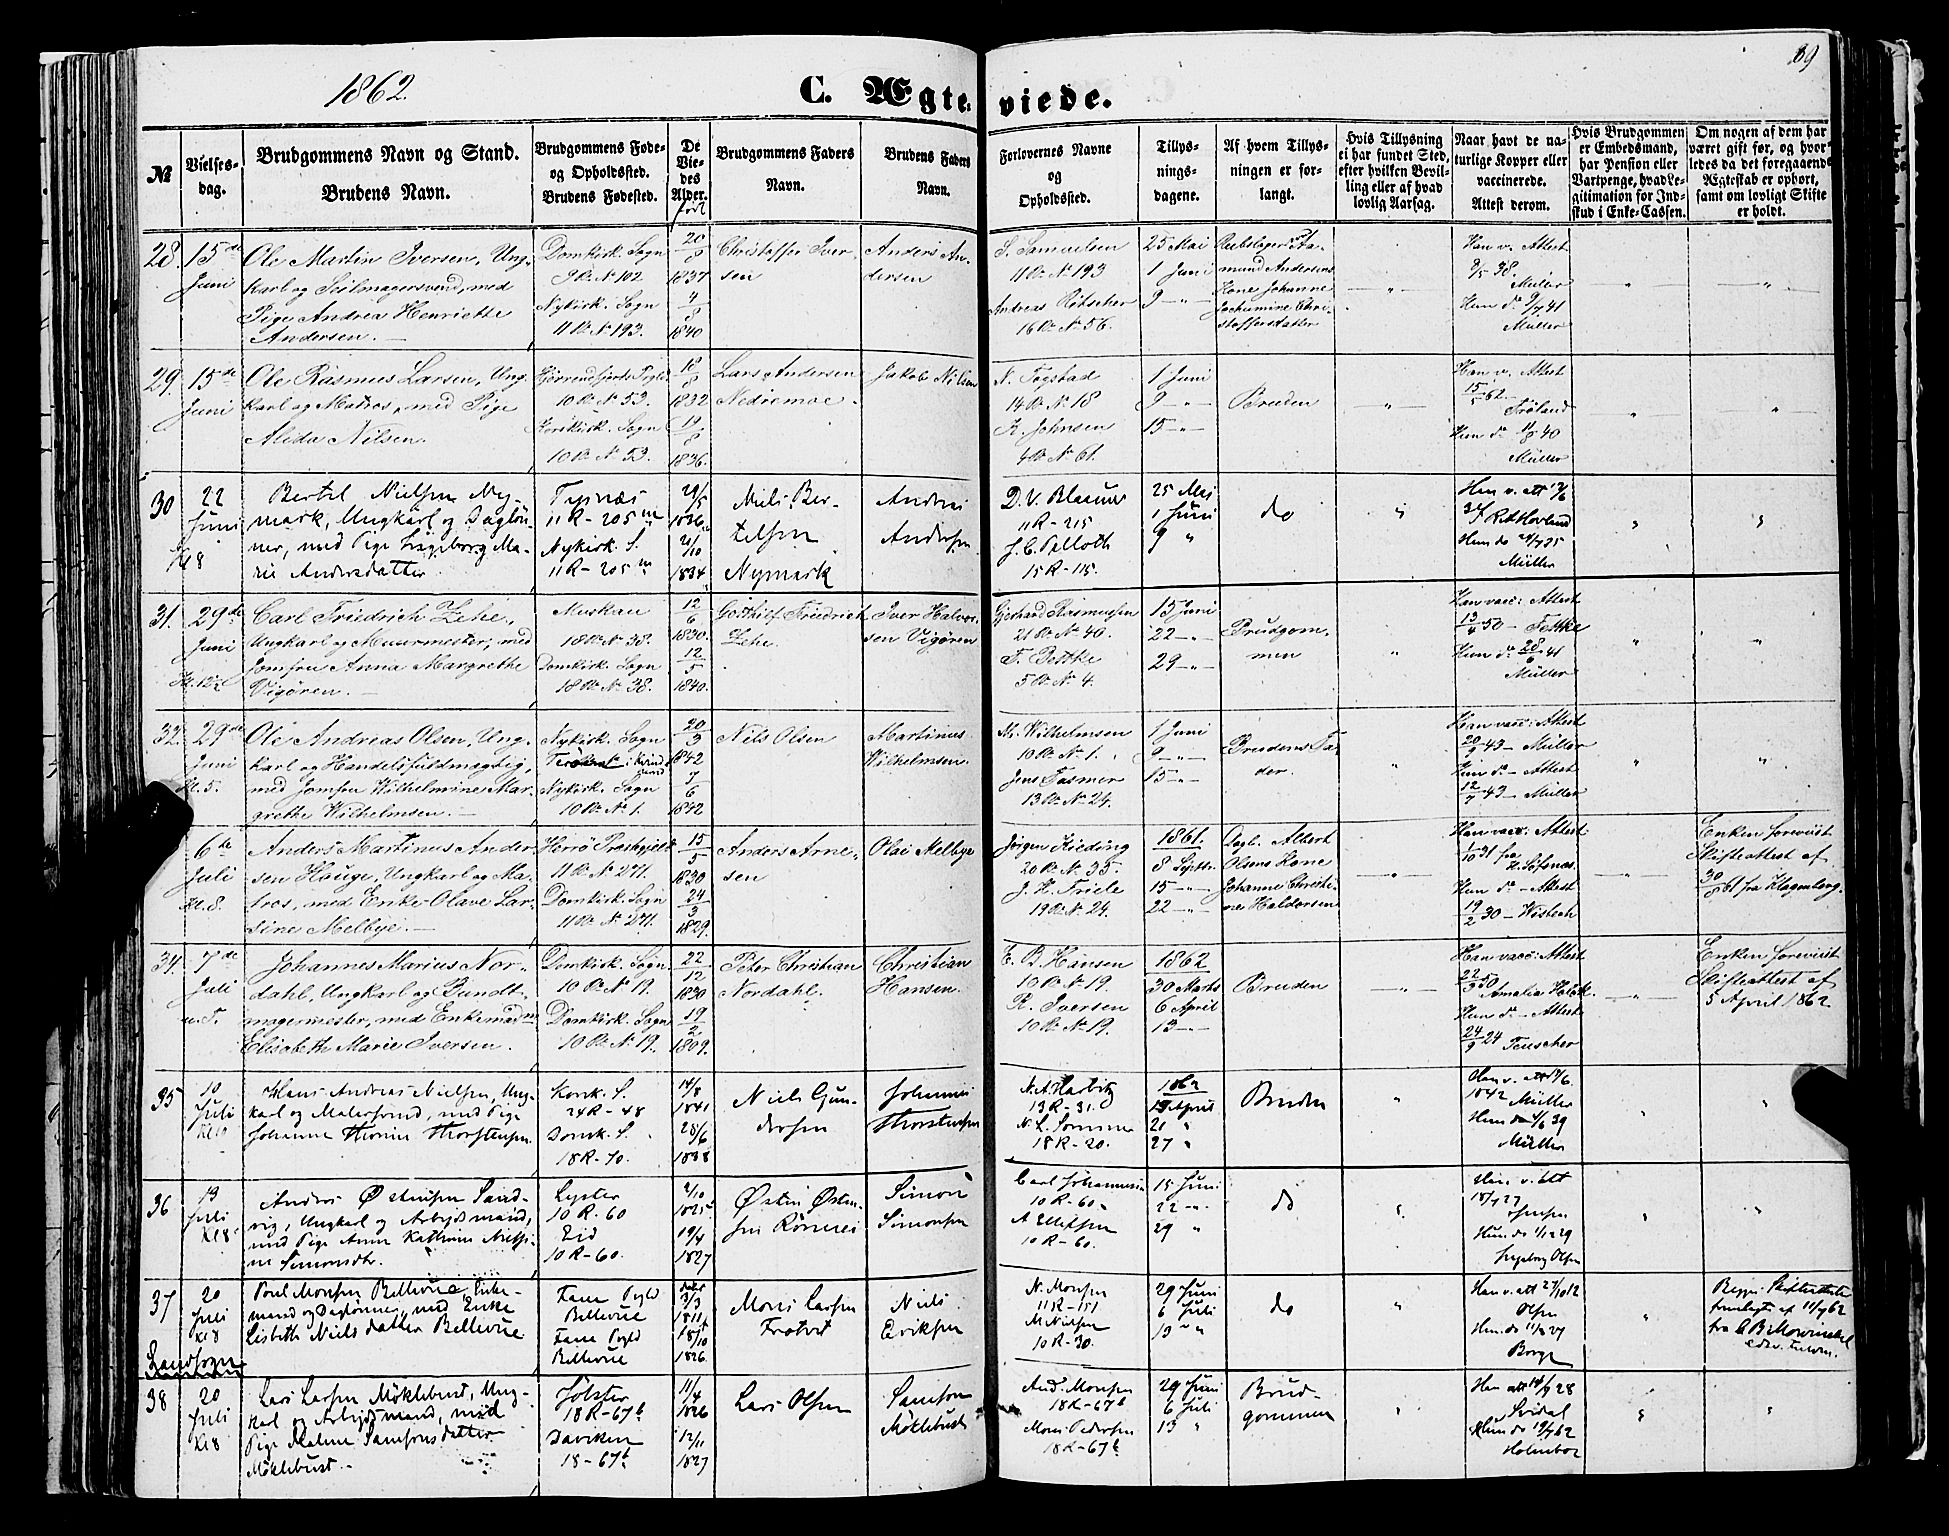 1862.
C. Ægte
viede.
69
№
Vielses-
dag.
Brudgommens Navn og Stand.
Brudens Navn.
Brudgommens Føde-
og Opholdssted.
Brudens Fødested.
De
Vie-
des
Alder.
født
Brudgommens Faders
Navn.
Brudens Faders
Navn.
Forlovernes Navne
og
Opholdssted.
Tillys-
nings-
dagene.
Af hvem Tillys-
ningen er for-
langt.
Hvis Tillysning
ei har fundet Sted,
efter hvilken Bevil-
ling eller af hvad
lovlig Aarsag.
Naar havt de na-
turlige Kopper eller
vaccinerede.
Attest derom.
Hvis Brudgommen
er Embedsmand,
har Pension eller
Vartpenge, hvad Le-
gitimation for Ind-
skud i Enke-Cassen.
Om nogen af dem har
været gift før, og hvor-
ledes da det foregaaende
Ægteskab er ophørt,
samt om lovligt Skifte
er holdt.
28. 15de
Juni
Ole Martin Iversen, Ung-
karl og Seilmagersvend, med
Pige Andrea Henriette
Andersen.
Domkirk. Sogn
9 R. No 102
Nykirk. Sogn
11 R. No 193.
20/8
1837
4/8
1840
Christoffer Iver-
sen
Anders An-
dersen
S. Samuelsen
11 R. No 193
Andreas Rötscher
16 R. No 56.
25 Mai
1 Juni
9 — " —
Rebslager
mund Andersens
Kone Johanne
Jochumine Chri-
stoffersdatter
Han v. Attest
8/5 38.
Müller
Hun do 9/7 41
Müller
29. 15de
Juni
Ole Rasmus Larsen, Ung-
karl og Matros, med Pige
Alida Nilsen.
10 R. No 53.
Korskirk. Sogn
10 R. No 53.
18/8
1832
19/8
1836.
Lars Andersen
Nedremoe.
Jakob Nilsen
N. Fogstad
14 R. No 18
K. Johnsen
4 R. No 61.
1 Juni
9 — " —
15 — " —
Bruden
Han v. Attest
15/5 62.
Frøland
Hun do 11/8 40
Müller
30 22
Juni
Kl 8
Bertel Nielsen Ny-
mark, Ungkarl og Dagløn-
ner, med Pige Ingeborg Ma-
rie Andersdatter.
Tysnæs
11 R - 205 m
Nykirk. S.
11 R - 205 m
29/5
1836
21/10
1834
Niels Ber-
telsen
Nymark
Andreas
Andersen
D. V. Blaauw
11 R - 215
J. C. Pelloth
15 R - 115.
25 Mai
1 Juni
9 "
do
Han v. att 17/6
37 Hovland
Hun do 24/7 35
Müller
31. 29de
Juni
Kl. 12½
Carl Friedrich Zehe,
Ungkarl og Muurmester, med
Jomfru Anna Margrethe
Vigören.
Muskau
18 R. No 38.
Domkirk. Sogn
18 R. No 38.
12/6
1830.
12/5
1840.
Gotthilf Friedrich
Zehe.
Iver Halvor-
sen Vigören
Gjerhard Rasmussen
21 R. No 40.
F. Pettke
5 R. No 4.
15 Juni
22 — " —
29 — " —
Brudgom-
men
Han vacc: Attest
13/4 50 — Fettke
Hun do 28/9 41
Müller
32. 29de
Juni
Kl. 5.
Ole Andreas Olsen, Ung-
karl og Handelsfuldmægtig,
med Jomfru Wilhelmine Mar-
grethe Wilhelmsen.
Nykirk. Sogn
Nykirk. Sogn
10 R. No 1.
20/3
1842
7/6
1842
Nils Olsen
Martinus
Wilhelmsen.
M. Wilhelmsen
10 R. No 1.
Jens Fasmer
13 R. No 24.
1 Juni
9 — " —
15 — " —
Brudens Fa-
der.
Han vacc: Attest
20/9 43 — Müller
Hun do — Attest
12/7 43 — Müller
6de
Juli
Kl. 8.
Anders Martinus Ander-
sen Houge, Ungkarl og Ma-
tros, med Enke Olave Lar-
sine Melbye.
Herrö Præstegjeld
11 R. No 271.
Domkirk. Sogn
11 R. No 271.
15/5
1830
24/3
1829.
Anders Arne-
sen
Olai Melbye
Jørgen Kieding
20 R. No 35.
J. H. Friele
19 R. No 24.
1861.
8 Septbr.
15 — " —
22 — " —
Dagl. Albert
Olsens Kone
Johanne Christi-
ne Haldorsen
Han vacc: Attest
1/10 31 fra
H. Söfnæs.
Hun do — Attest
19/2 30 — Wisbech
Enken foreviist
Skifteattest af
30/8 61 fra Klagenberg.
34. 7de
Juli
Johannes Marius Nor-
dahl, Ungkarl og Bundt-
magermester, med Enkemadm
Elisabeth Marie Iversen.
Domkirk. Sogn
10 R. No 19.
Domkirk. Sogn
10 R. No 19.
22/12
1830
19/2
1809.
Peter Christian
Nordahl.
Christian
Hansen.
E. B. Hansen
10 R. No 19.
R. Iversen
10 R. No 19.
1862
30 Marts
6 April
13 — " —
Bruden
Han vacc: Attest
22/9 50
Amalia Holck.
Hun do — Attest
24/9 24 Teuscher
Enken foreviist
Skifteattest af
5 April 1862.
35 10
Juli
Kl 10
Hans Andreas Nielsen, Ung-
karl og Malersvend, med Pige
Johanne Thorine Thorstensen.
Korsk. S.
24 R - 48
Domk. S.
18 R - 70.
14/8
1841
28/6
1838
Niels Gun-
dersen
Johannes
Thorstensen
N. A. Harbitz
13 R - 31.
N. L. Sømme
18 R - 20.
1862
13 April
21 "
27 "
Bruden
Han v. att 17/6.
1842 Müller
Hun do 4/6 39
Müller
36 13
Juli
Kl 8
Anders Østensen Sand-
vig, Ungkarl og Arbeidsmand,
med Pige Anne Kathrine Niels-
ne Simonsdtr.
Lyster
10 R - 60
Eid
10 R - 60.
2/10
1825
19/4
1827
Østen Østen-
sen Rørnes
Simon
Simonsen
Carl Johannesen
10 R - 60
A Ellefsen
10 R - 60.
15 Juni
22 — " —
29 "
do
Han v. att
18/7 27
Jensen
Hun do 1/12 29
Ingeborg Olsen
37 20
Juli
Kl 8
Landsogn
Poul Monsen Bellevue, Enke-
mand og Daglønner, med Enke
Lisbeth Niels datter Bellevue
Fane Pgld
Bellevue
Fane Pgld
Bellevue
døbt
3/3
1811
18/10
1826.
Mons Larsen
Trotvet
Niels
Eriksen
N. Monsen
11 R - 151
M Nielsen
10 R - 30.
29 Juni
6 Juli
13 "
do
Han v. att 27/10 12
Olsen
Hun do 11/8 27
Borge
Begge Skifteattester
fremlagt af 11/7 62
fra C B Mowinckel
38 20
Juli
Kl 8
Lars Larsen Møklebust, Ung-
karl og Arbeidsmand, med
Pige Malene Samsons datter
Møklebust.
Jølster
18 R - 67 b
Daviken
18 - 67 b
11/4
1826
12/11
1827
Lars Olsen
Samson
Møklebust
And. Monsen
18 R - 67 b
Mons Pedersen
18 R - 67 b
29 Juni
6 Juli
13 "
Brud-
gommen
Han att 14/9 28
Svidal
Hun do 19/7 62
Holmboe